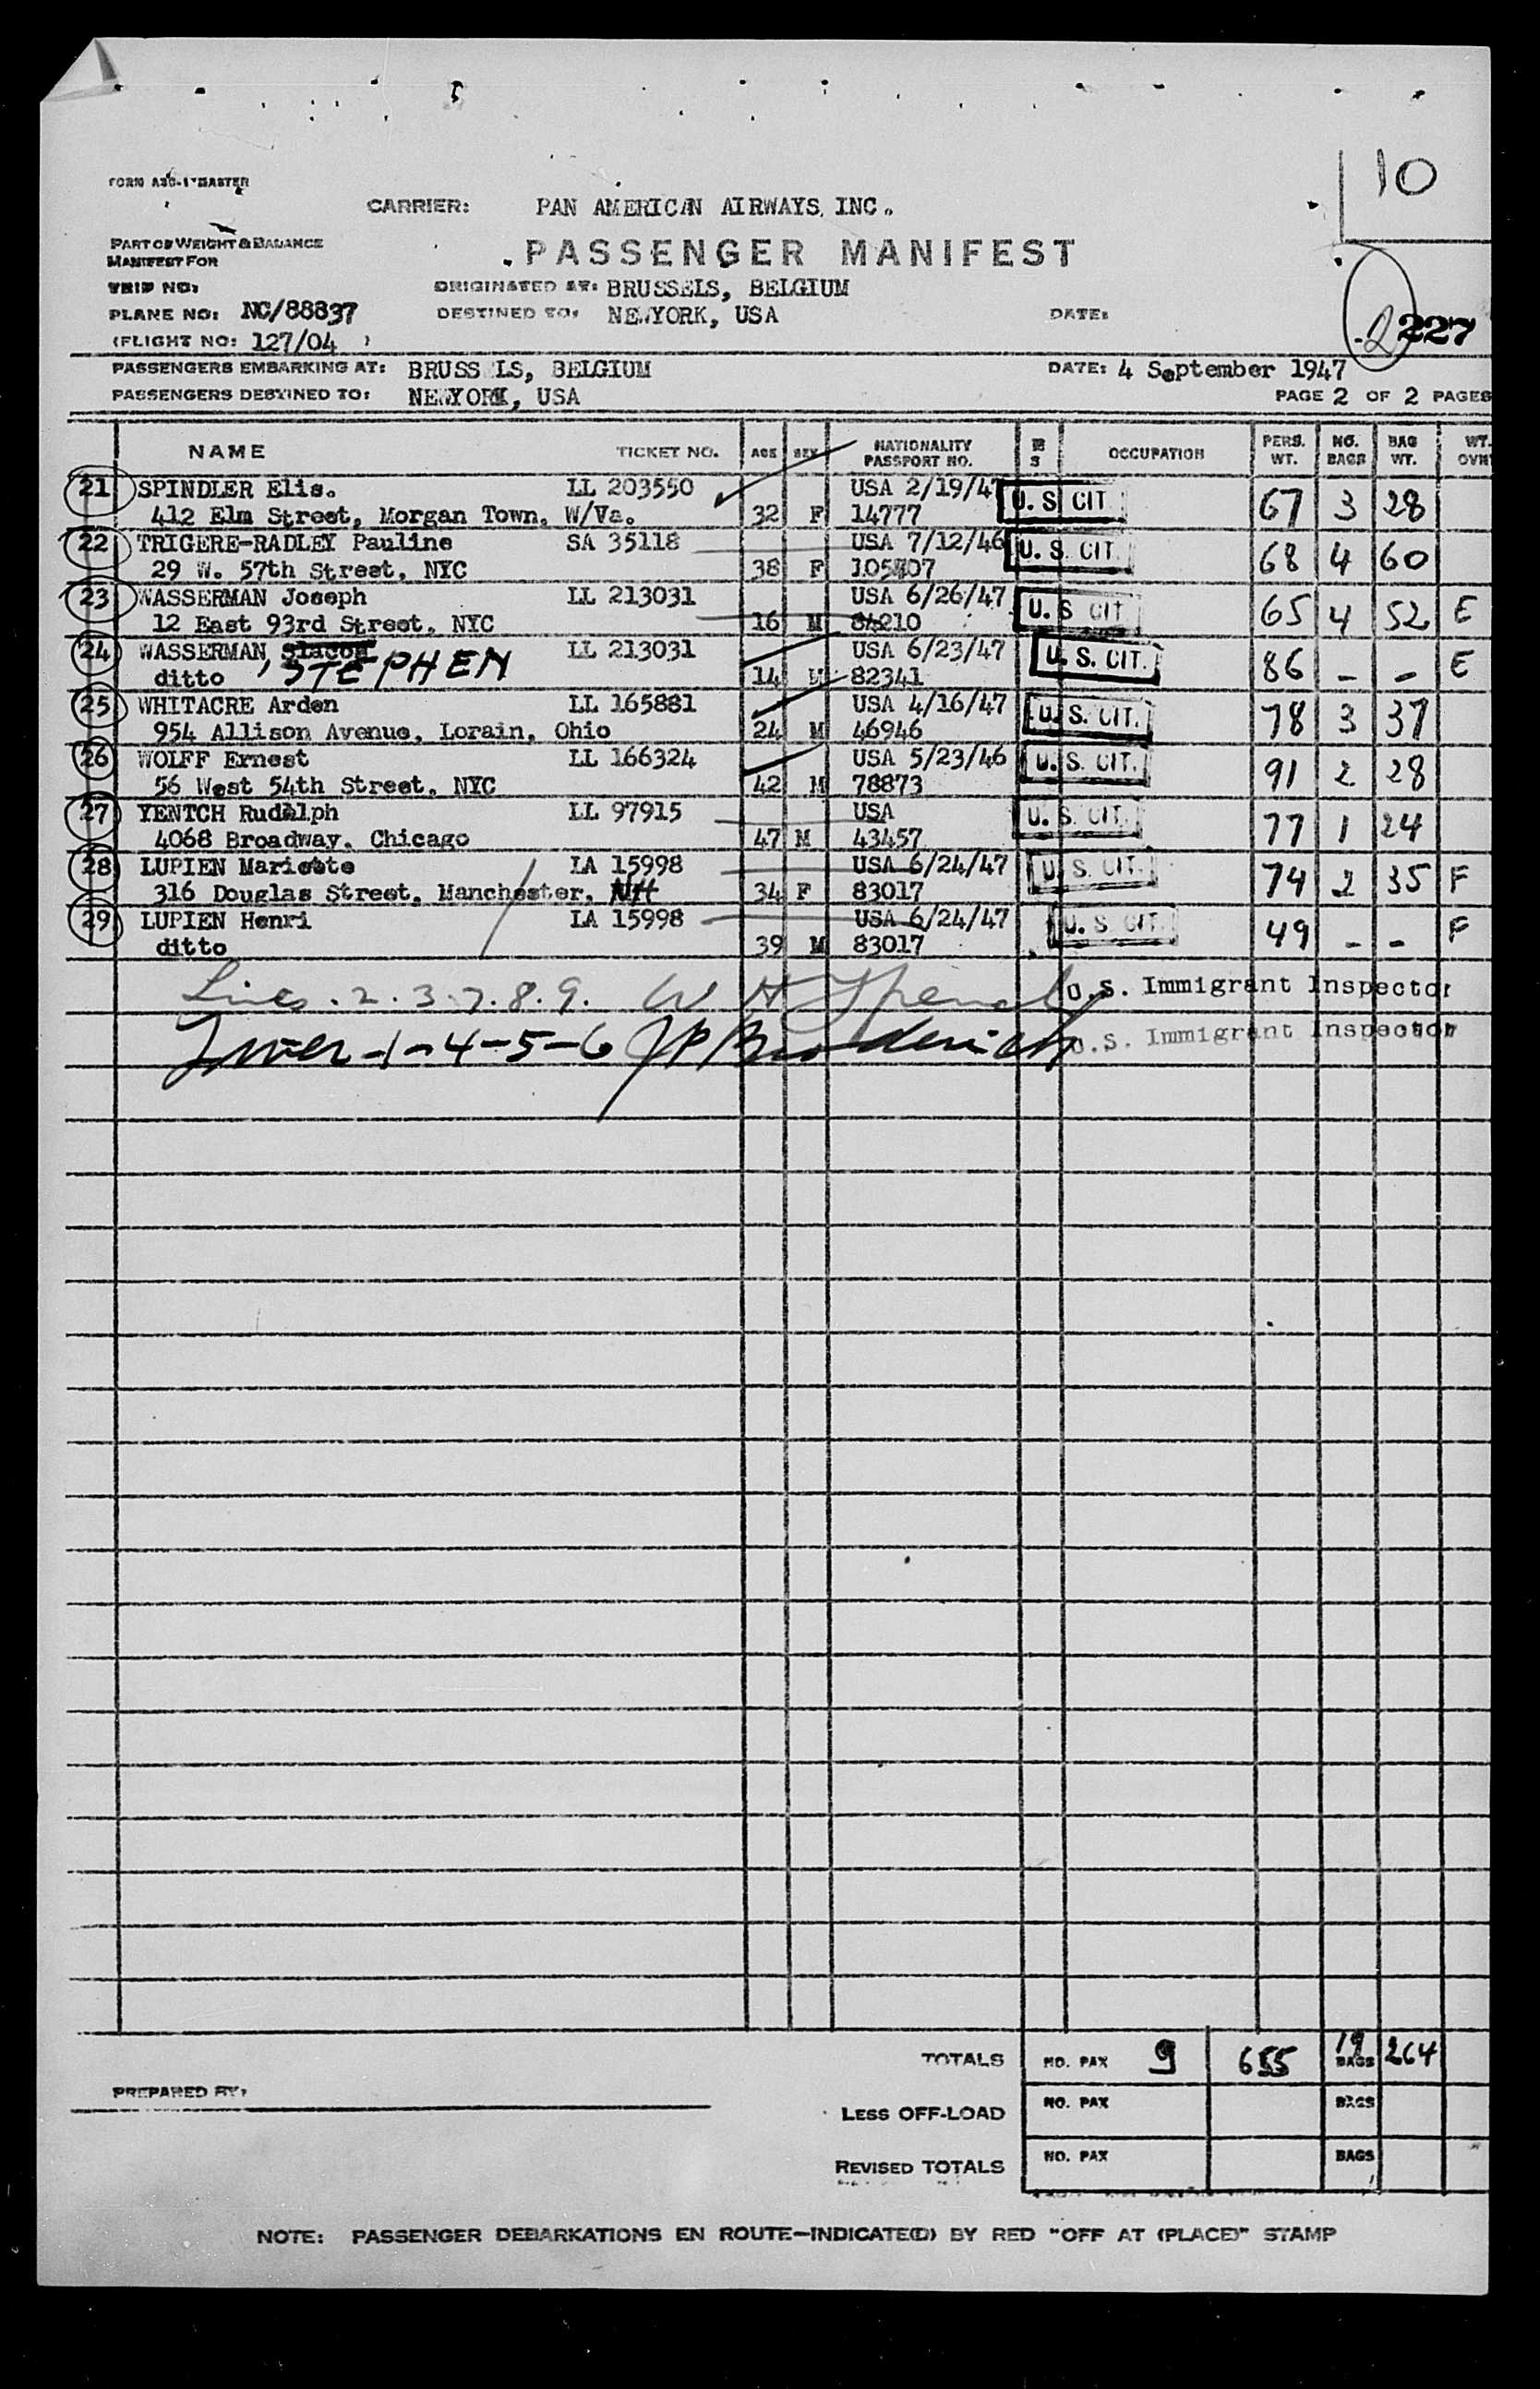 10
FORM ASC-1 MASTER
CARRIER: PAN AMERICAN AIRWAYS, INC.
PART OF WEIGHT & BALANCE
MANIFEST FOR
PASSENGER MANIFEST
TRIP NO:
ORIGINATED AT: BRUSSELS, BELGIUM
PLANE NO: NC/88837
DESTINED TO: NEWYORK, USA
DATE:
2 227
(FLIGHT NO: 127/04 )
PASSENGERS EMBARKING AT: BRUSS LS, BELGIUM
DATE: 4 September 1947
PASSENGERS DESTINED TO: NEWYORK, USA
PAGE 2 OF 2 PAGES
NAME TICKET NO. AGE SEX NATIONALITY PASSPORT NO. OCCUPATION PERS. WT. NO. BAGS BAG WT. WT. OVN
21 SPINDLER Elis. LL 203550 USA 2/19/47 U. S. CIT. 67 3 28
412 Elm Street, Morgan Town, W/Va. 32 F 14777
22 TRIGERE-RADLEY Pauline SA 35118 USA 7/12/46 U. S. CIT. 68 4 60
29 W. 57th Street, NYC 38 F
23 WASSERMAN Joseph LL 213031 USA 6/26/47 U. S. CIT. 65 4 52 E
12 East 93rd Street, NYC 16 M 84210
24 WASSERMAN STEPHEN LL 213031 USA 6/23/47 U. S. CIT. 86 - - E
ditto 14 M 82341
25 WHITACRE Arden LL 165881 USA 4/16/47 U. S. CIT. 78 3 37
954 Allison Avenue, Lorain, Ohio 24 M 46946
26 WOLFF Ernest LL 166324 USA 5/23/46 U. S. CIT. 91 2 28
56 West 54th Street, NYC 42 M 78873
27 YENTCH Rudolph LL 97915 USA U. S. CIT. 77 1 24
4068 Broadway, Chicago 47 M 43457
28 LUPIEN Mariette LA 15998 USA 6/24/47 U. S. CIT. 74 2 35 F
316 Douglas Street, Manchester, NH 34 F 83017
29 LUPIEN Henri LA 15998 USA 6/24/47 U. S. CIT. 49 - - F
ditto 39 M 83017
Lines. 2. 3. 7. 8. 9. W H U.S. Immigrant Inspector
Lines -1-4-5-6 JP Broderick U.S. Immigrant Inspector
TOTALS NO. PAX 9 655 19 BAGS 264
PREPARED BY:
LESS OFF-LOAD NO. PAX BAGS
REVISED TOTALS NO. PAX BAGS
NOTE: PASSENGER DEBARKATIONS EN ROUTE—INDICATE(D) BY RED "OFF AT (PLACE)" STAMP